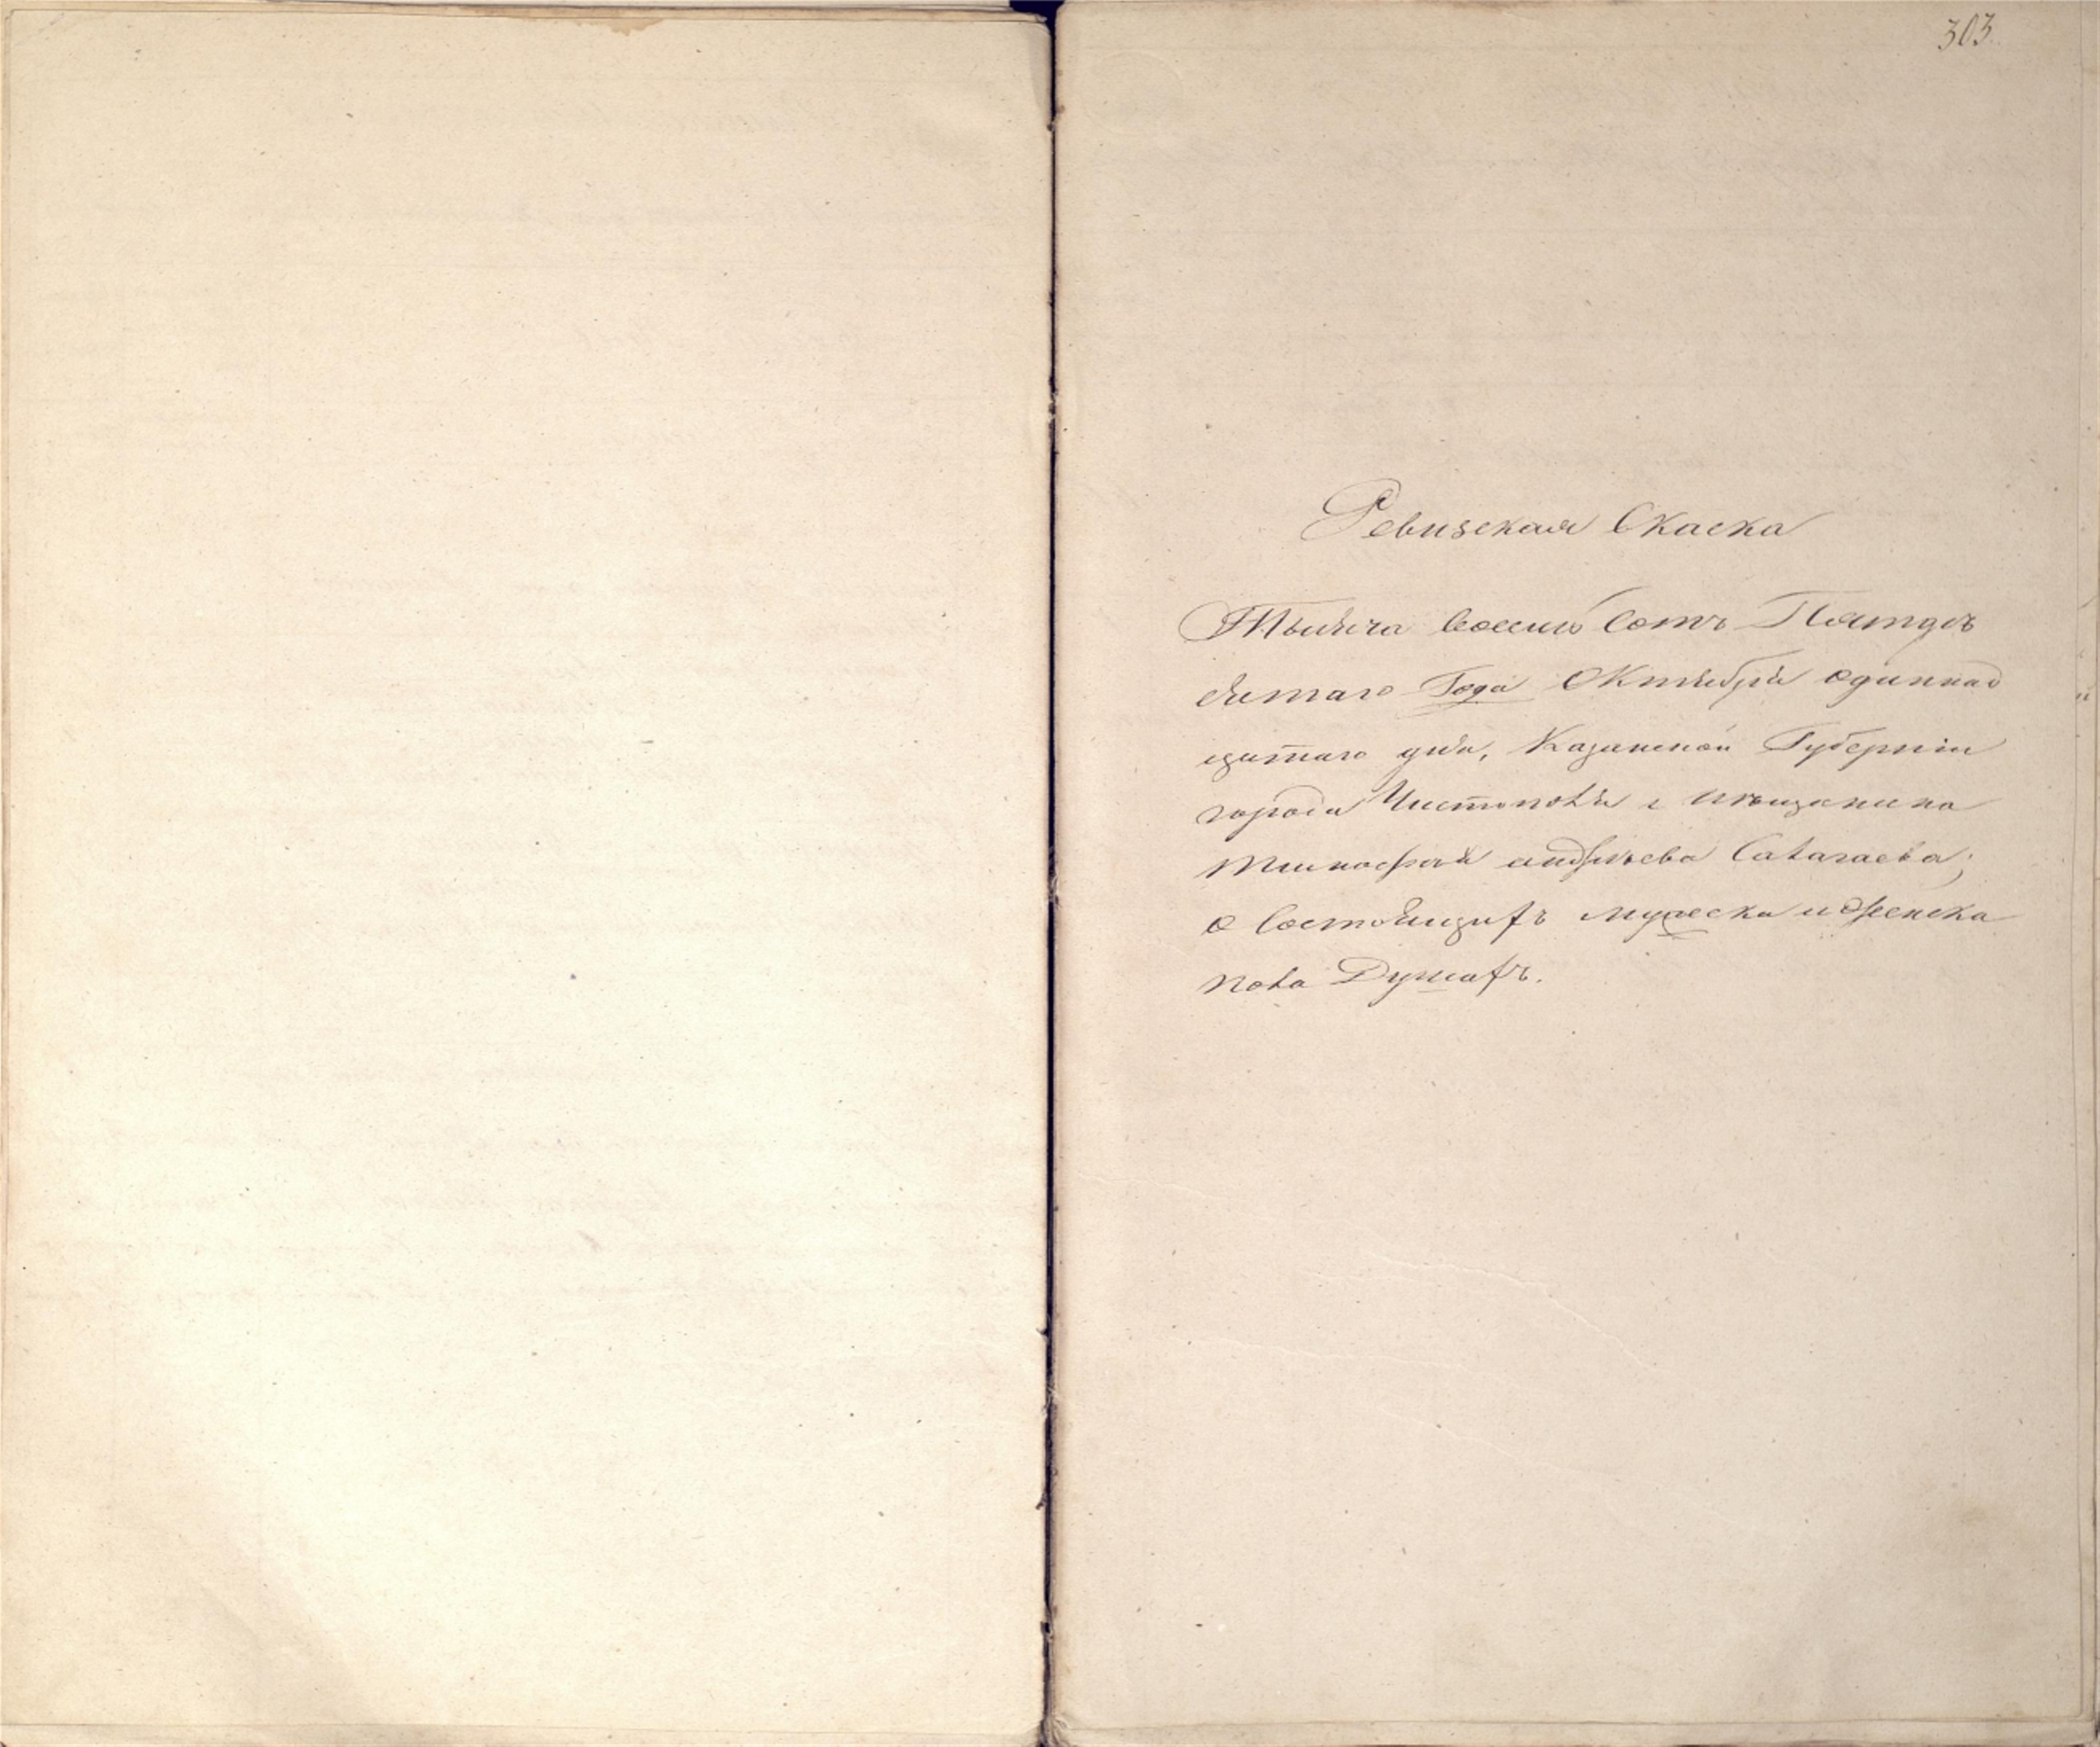 303.
Ревизская Скаска
Тысяча восемь Сотъ Пятдѣ
сятаго Года Октября одиннад
цатаго дня, Казанской Губерніи
города Чистополя мѣщанина
андрѣева Салагаева;
О Состоящихъ мужеска и женска
пола Душахъ.